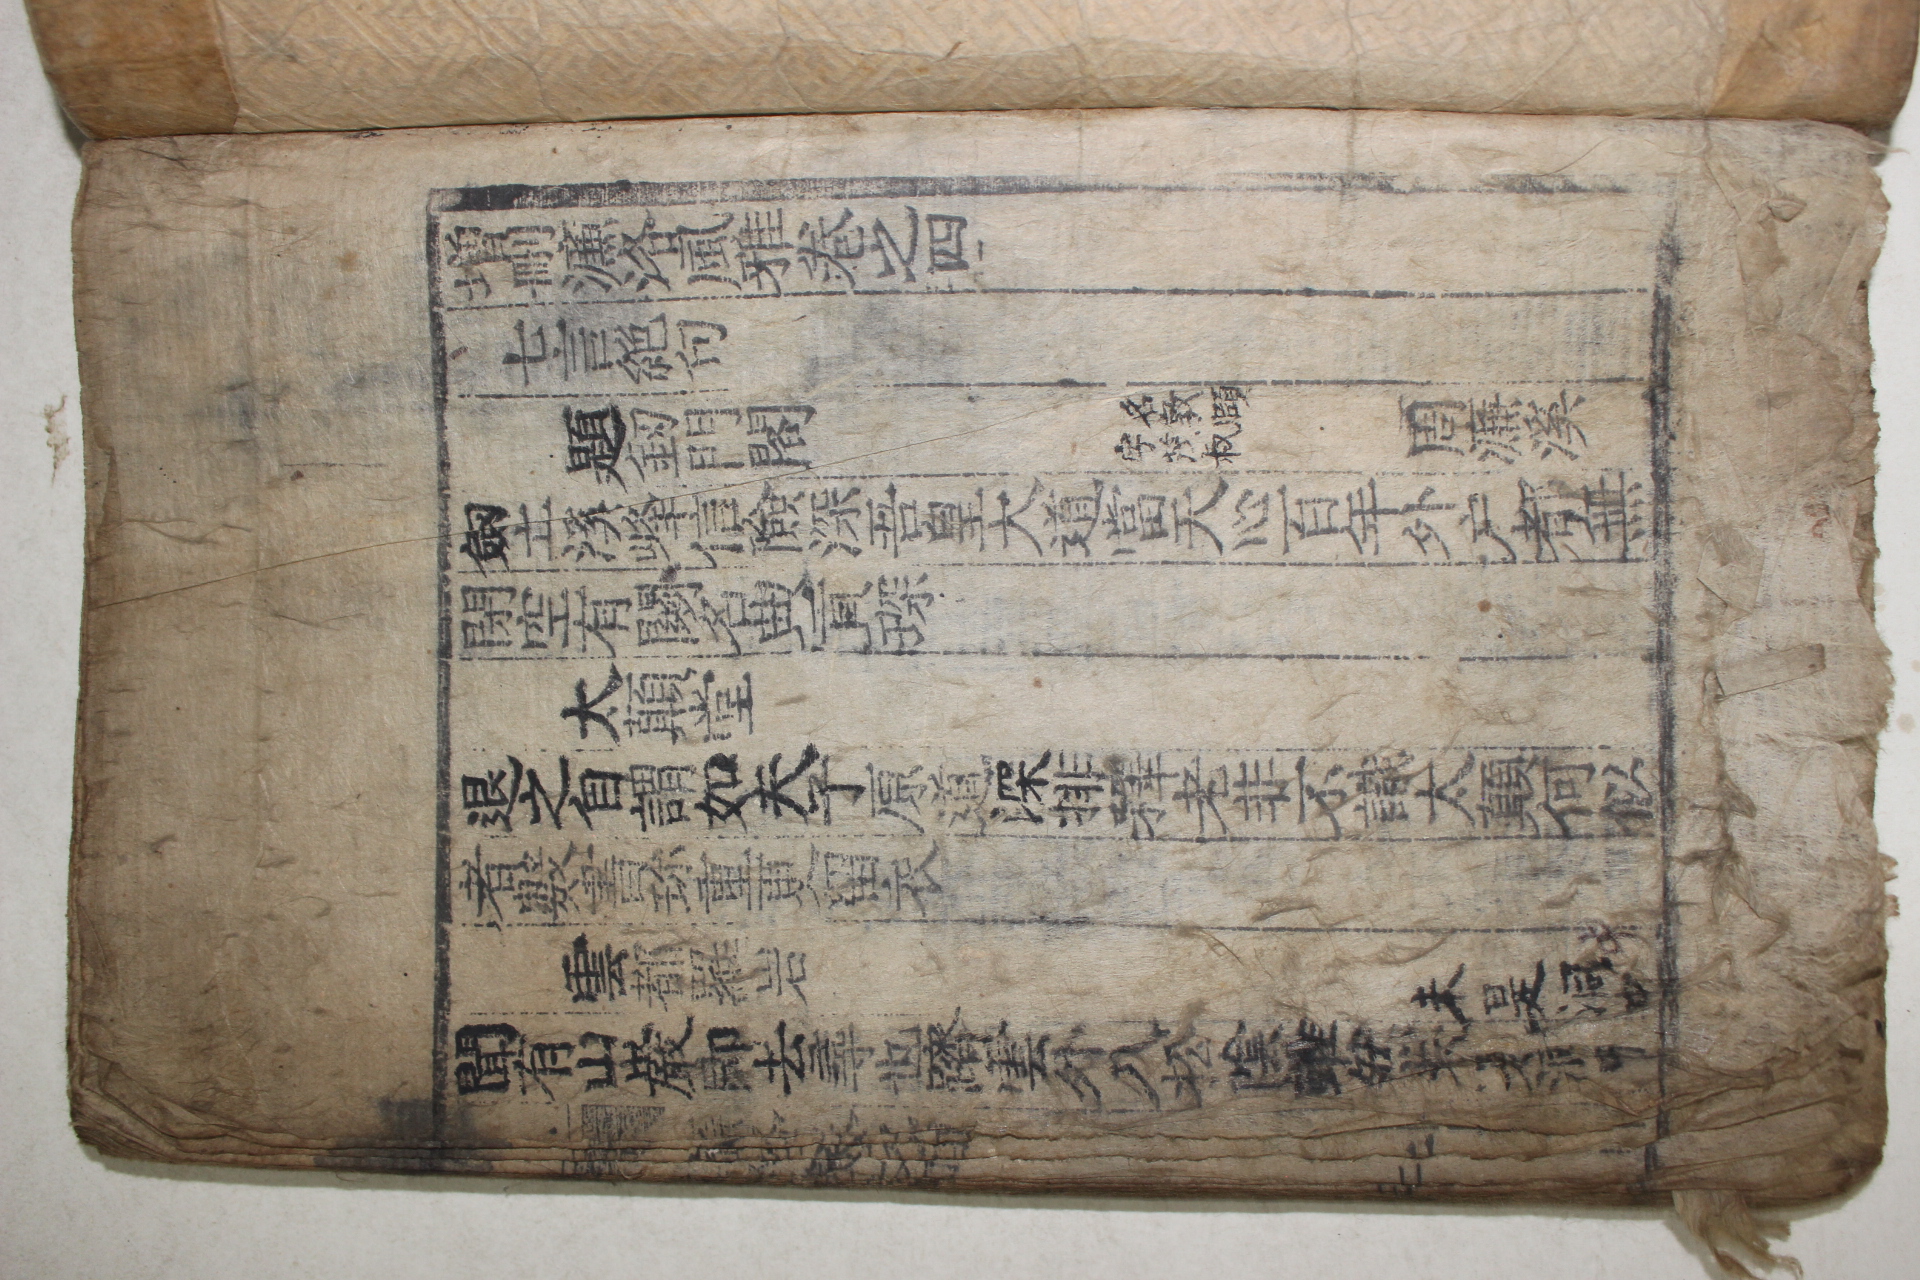 增刪濂洛風雅卷之四
七言絶句
題釰門閣 名敦頤 字茂叔 周濂溪
劒立溪峰信險深吾皇大道當天心百年外户都無
閉空有關名典賨琛
太顚堂
退之自謂如夫子原道深排釋老非不識太顚何似
者數書珍重更留衣
雲都羅岩
聞有山巖即去尋也躋雲外入松陰雖然未是洞中
未是洞中